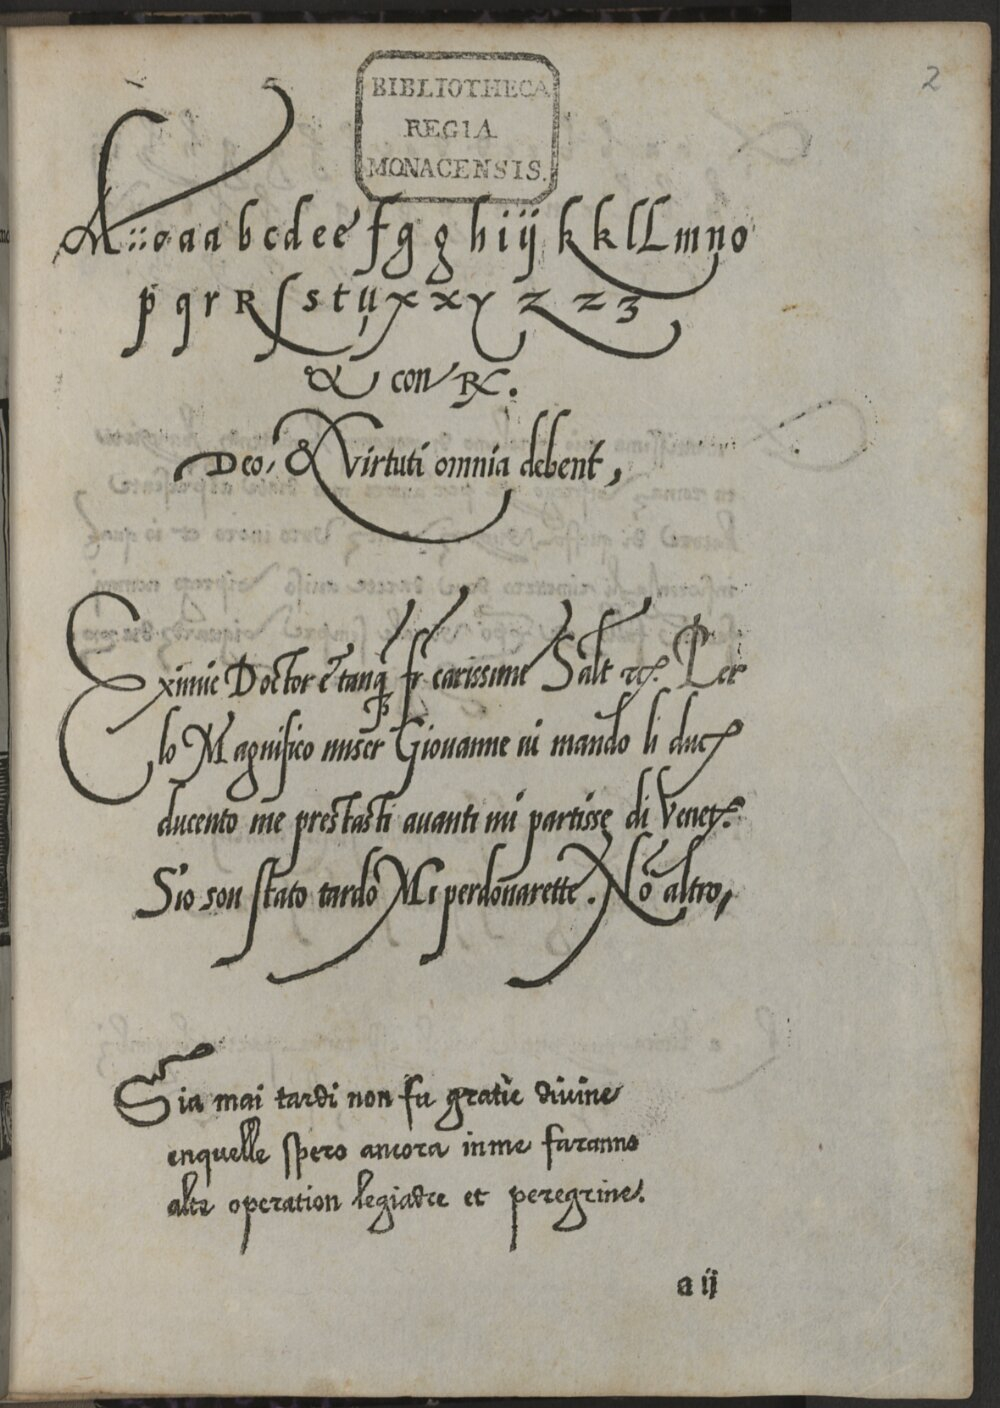 2
BIBLIOTHECA
REGIA
MONACENSIS.
A :: a a a b c d e e f g g h i ij k k l L m n o
p q r R ſ s t u x x y z z 3
& con Rx.
Deo, & Virtuti omnia debent,
Eximie Doctor et tanq̃ fr̃ carissime Salt &c. Per
lo Magnifico miser Giovanne vi mando li duc.
ducento me prestasti avanti mi partisse di Venet.
S'io son ſtato tardo Mi perdonarette. Nõ altro,
Sia mai tardi non fu gratie divine
enquelle ſpero ancora in me faranno
alte operation legiadre et peregrine.
a ij